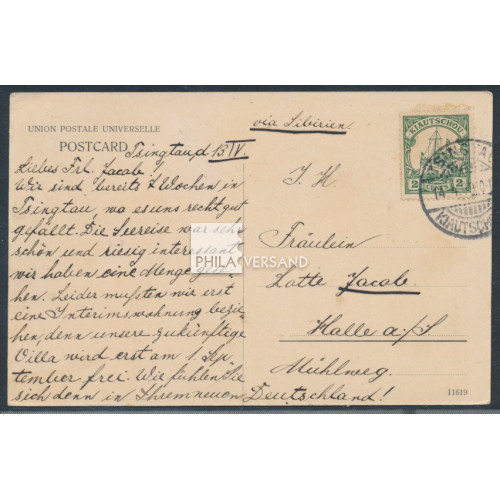 UNION POSTALE UNIVERSELLE
POSTCARD
Tsingtau, d 13. IV
Liebes Frl. Jacobi.
Wir sind bereits 7 Wochen in
Tsingtau, wo es uns recht gut
gefällt. Die Seereise war sehr
schön und riesig interessant
wir haben eine Menge gese-
hen. Leider mußten wir erst
eine Interimswohnung bezie-
hen, denn unsere zukünftige
Villa wird erst am 1. Sep-
tember frei. Wie fühlen Sie
sich denn in Ihrem neuen
via Sibirien.
KIAUTSCHOU
2 CENTS 2
TSINGTAU
KIAUTSCH
Fräulein
Lotte Jacobi.
Halle a/S
Mühlweg.
Deutschland!
11619
PHILA VERSAND